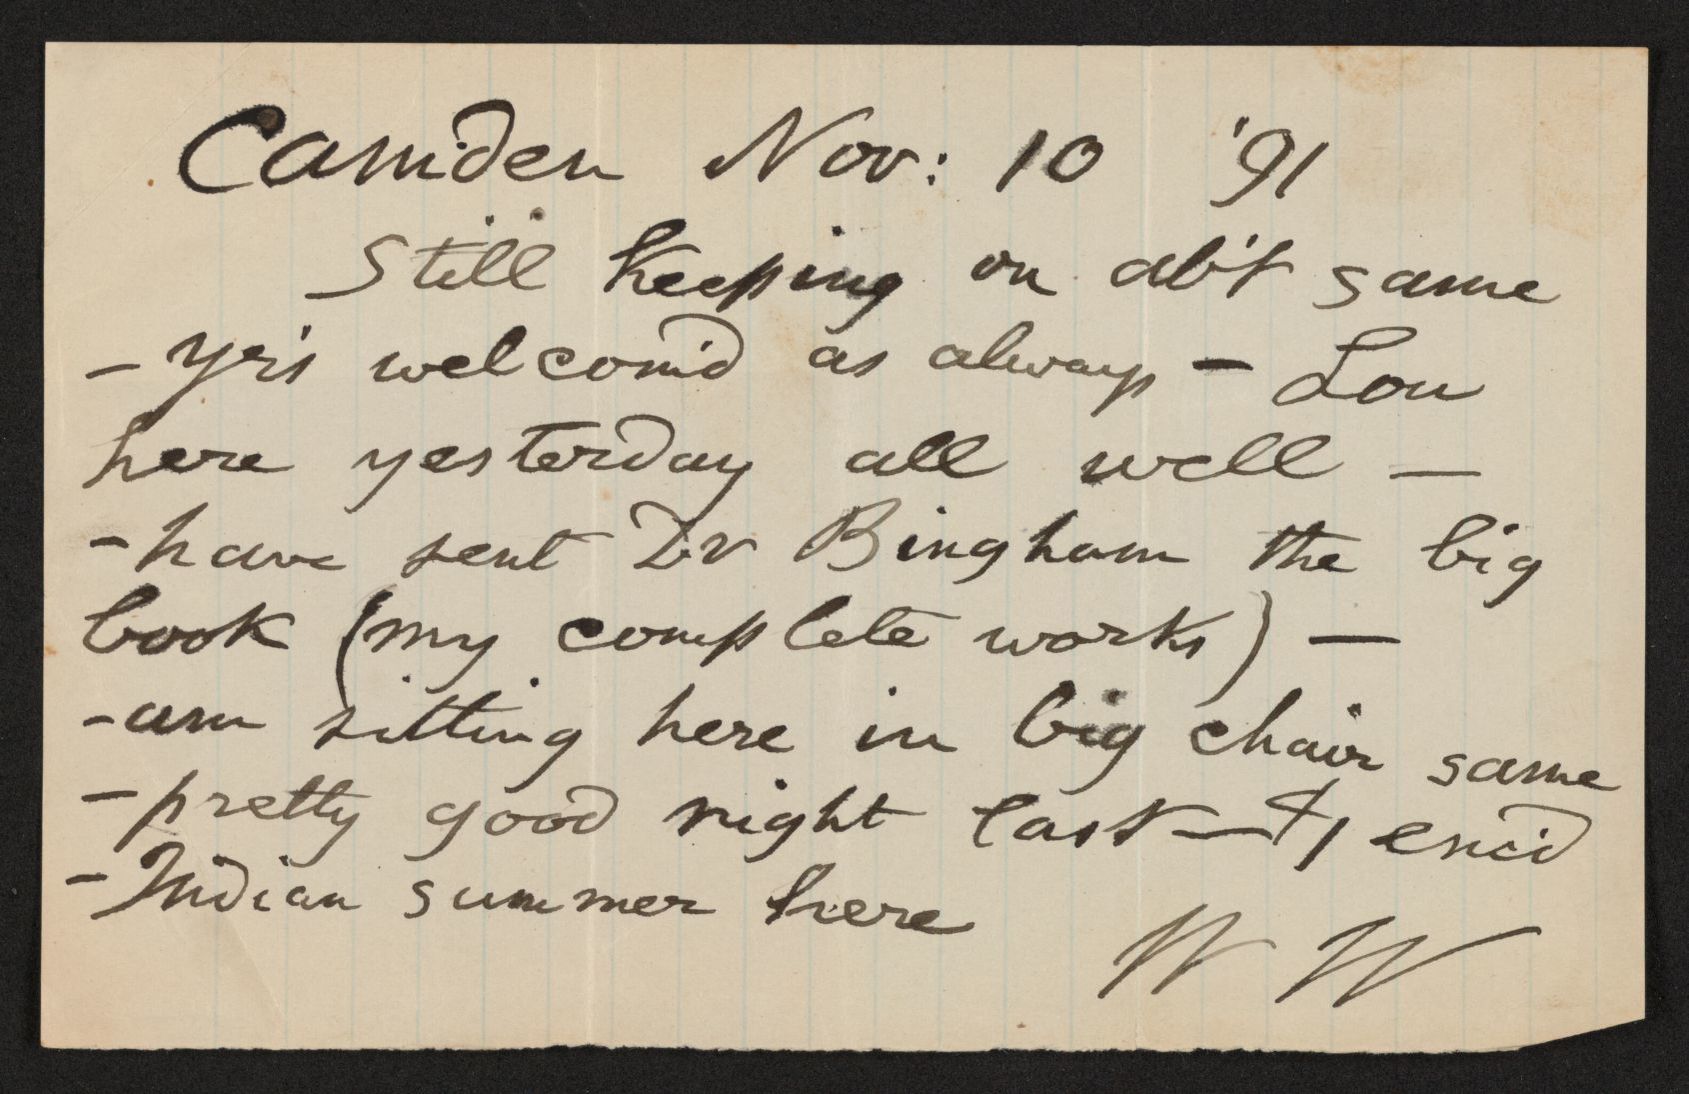 Camden Nov: 10 '91
Still keeping on ab't same
- y'rs welcom'd as always - Lou
here yesterday all well —
- have sent Dr Bingham the big
book (my complete works) —
- am sitting here in big chair same
- pretty good night last — &
- Indian summer here
W W